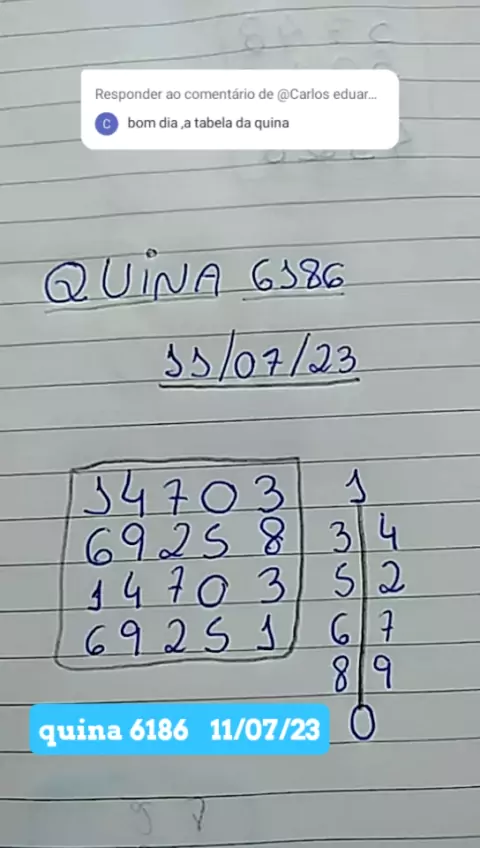 Responder ao comentário de @Carlos eduar...
C bom dia ,a tabela da quina
QUINA 6186
11/07/23
1 4 7 0 3
6 9 2 5 8
1 4 7 0 3
6 9 2 5 1
1
3 4
5 2
6 7
8 9
0
quina 6186 11/07/23